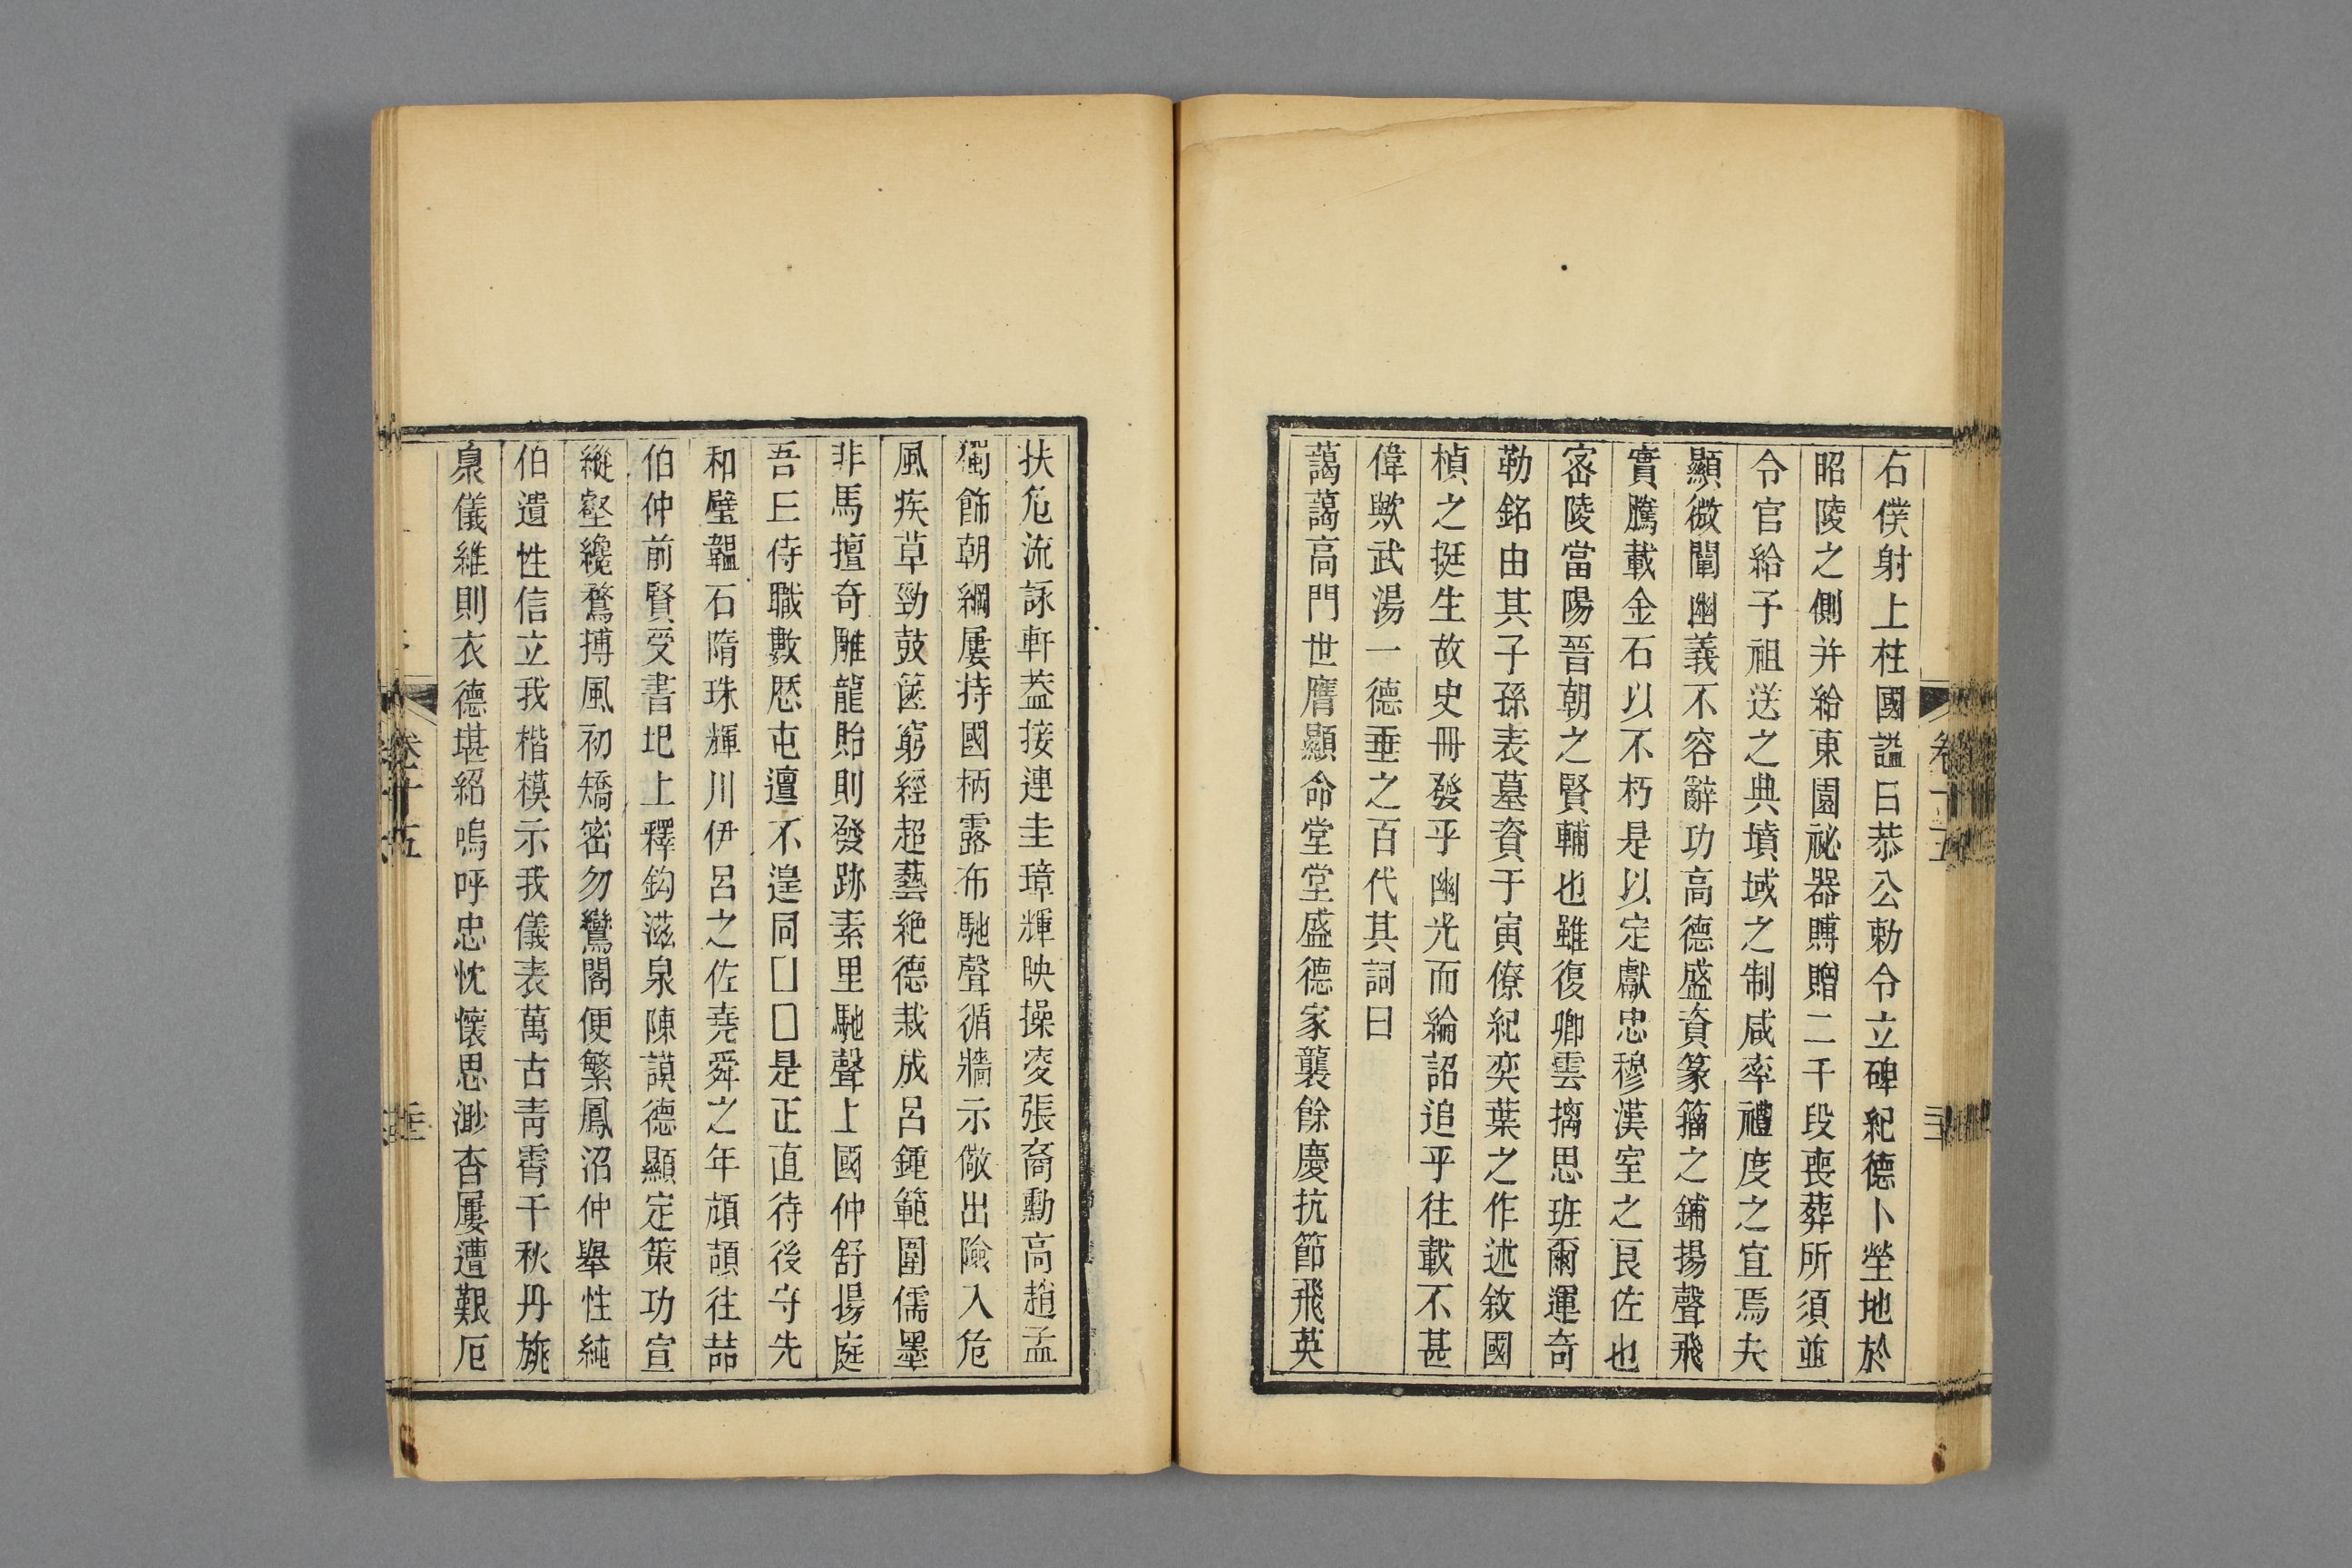 右僕射上柱國諡曰恭公勅令立碑紀德卜塋地於
昭陵之側并給東園祕器賻贈二千段喪葬所須並
令官給子祖送之典墳域之制咸率禮度之宜焉夫
顯微闡幽義不容辭功高德盛資篆籀之鋪揚聲飛
實騰載金石以不朽是以定獻忠穆漢室之良佐也
密陵當陽晉朝之賢輔也雖復卿雲摛思班爾運奇
勒銘由其子孫表墓資于寅僚紀奕葉之作述敘國
楨之挺生故史冊發乎幽光而綸詔追乎往載不甚
偉歟武湯一德垂之百代其詞曰
藹藹高門世膺顯命堂堂盛德家襲餘慶抗節飛英
卷十五
扶危流詠軒葢接連圭璋輝映操夌張裔勳高趙孟
獨飾朝綱屢持國柄露布馳聲循牆示儆出險入危
風疾草勁鼓篋窮經超藝絶德栽成呂鍾範圍儒墨
非馬擅奇雕龍貽則發跡素里馳聲上國仲舒揚庭
吾王侍職數歷屯邅不遑同□□是正直待後守先
和璧韞石隋珠輝川伊呂之佐堯舜之年頏頡往喆
伯仲前賢受書圯上釋鈎滋泉陳謨德顯定策功宣
縱壑纔鶩搏風初矯密勿鸞閣便繁鳳沼仲舉性純
伯遺性信立我楷模示我儀表萬古青霄千秋丹旐
泉儀維則衣德堪紹嗚呼忠忱懷思渺杳屢遭艱厄
卷十五